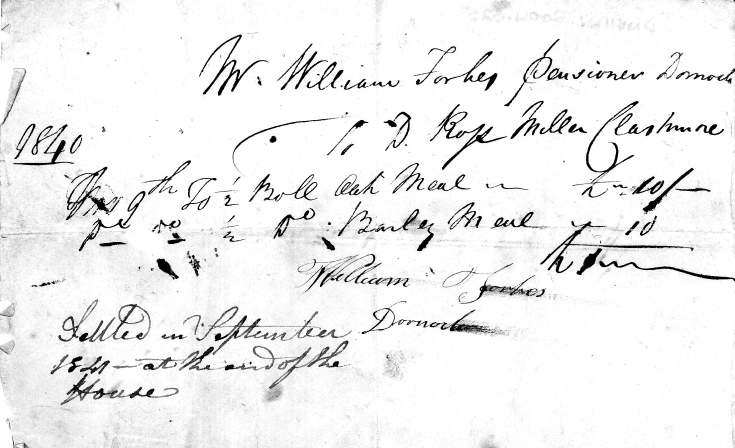 Mr. William Forbes Pensioner Dornoch
1840 To D. Ross Miller Clashmore
9th To ½ Boll Oat Meal £ " 10/-
Do Do ½ Do Barley Meal " 10
£1
William Forbes
Dornoch
Settled in September
1841 — at the end of the
House